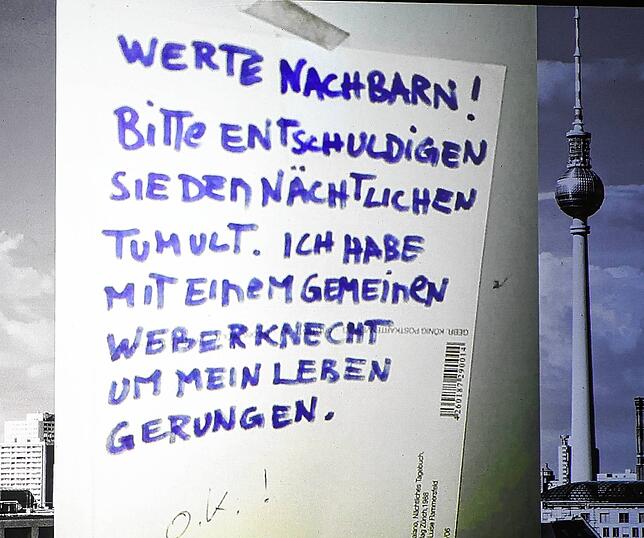 WERTE NACHBARN!
Bitte ENTSCHULDIGEN
SIE DEN NÄCHTLICHEN
TUMULT. ICH HABE
MIT EINEM GEMEINEN
WEBERKNECHT
UM MEIN LEBEN
GERUNGEN.
O.K.!
GEBR. KÖNIG POSTKARTEN
4260187290014
Nächtliches Tagebuch,
Zürich, 1988